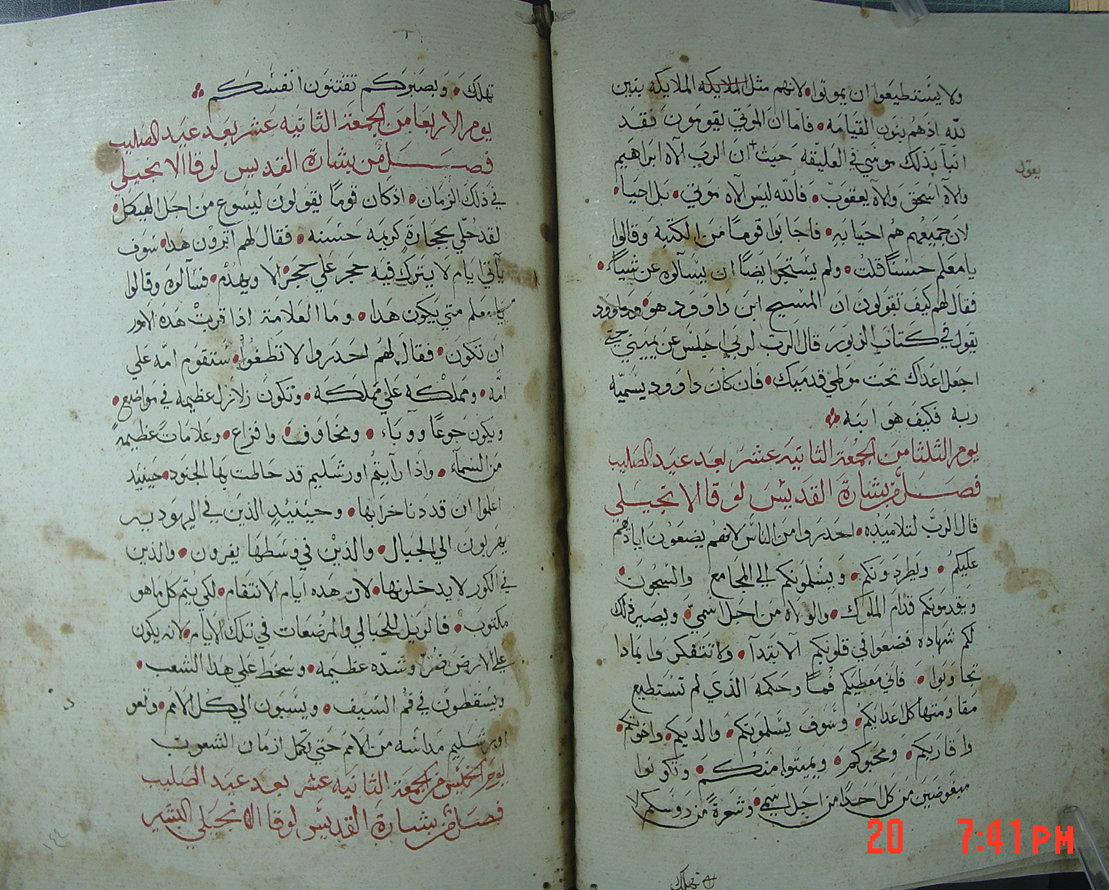 ولا يستطيعوا ان يموتوا لانهم مثل الملايكه الملايكه بنين
لله اذ هم بنون القيامه فاما ان الموتي يقومون فقد
انبا بذلك موسي في العليقه حيث ان الرب الاه ابراهيم
والاه اسحق والاه يعقوب فالله ليس الاه موتي بل احيا
لان جميعهم هم احيا به فاجابوا قومًا من الكتبة وقالوا
يا معلم حسنًا قلت ولم يستجروا ايضًا ان يسآلوه عن شيًا
فقال لهم كيف تقولون ان المسيح ابن داوود هو وداوود
يقول في كتاب الزبور قال الرب لربي اجلس عن يميني حتي
اجعل اعداك تحت موطي قدميك فان كان داوود يسميه
ربه فكيف هو ابنه
يوم الثلثا من الجمعة الثانيه عشر بعد عيد الصليب
فصل من بشارة القديس لوقا الانجيلي
قال الرب لتلاميذه احدروا من الناس لانهم يضعون اياديهم
عليكم ويطردونكم ويسلمونكم الي المجامع والسجون
ويقدمونكم قدام الملوك والولاه من اجل اسمي ويصير ذلك
لكم شهاده فضعوا في قلوبكم الا تبتدآ وا تتفكروا بمادا
تجاوبوا فاني معطيكم فمًا وحكمة الذي لم تستطيع
مقاومتها كل اعدايكم وسوف يسلمونكم والديكم واخوتكم
واقاربكم ومحبوكم ويميتوا منكم وتكونوا
مبغوضين من كل احدًا من اجل اسمي وشعرةً من روسكم لا
تهلك
يعقوب
تهلك وبصبركم تقتنون انفسكم
يوم الاربعا من الجمعة الثانيه عشر بعد عيد الصليب
فصل من بشارة القديس لوقا الانجيلي
في ذلك الزمان اذ كان قومًا يقولون ليسوع من اجل الهيكل
لقد حُلي بحجارةٍ كريمه حسنه فقال لهم اترون هدا سوف
يآتي ايام لا يترك فيه حجر علي حجر الا ويهدم فسآلوه وقالوا
يا معلم متي يكون هدا وما العلامة اذا قربت هده الامور
ان تكون فقال لهم احدروا لا تطغوا ستقوم امه علي
امه ومملكه علي مملكه وتكون زلازل عظيمه في مواضع
ويكون جوعًا ووباء ومخاوف وافزاع وعلامات عظيمه
من السماء واذا رايتم اورشليم قد حاطت بها الجنود حينيد
اعلموا ان قد دنا خرابها وحينيدٍ الذين في اليهوديه
يهربون الي الجبال والذين في وسطها يفرون والذين
في الكور لا يدخلونها لان هده ايام الانتقام لكي يتم كل ما هو
مكتوب فالويل للحبالي والمرضعات في تلك الايام لانه يكون
علي الارض ضرّ وشدّه عظيمه وسخط علي هذا الشعب
ويسقطون في فم السيف ويسبون الي كل الامم وتعو
اورشليم مداسه من الامم حتي تكمل ازمان الشعوب
يوم الخميس من الجمعة الثانيه عشر بعد عيد الصليب
فصل من بشارة القديس لوقا الانجيلي البشير
١٤٤
20 7:41PM